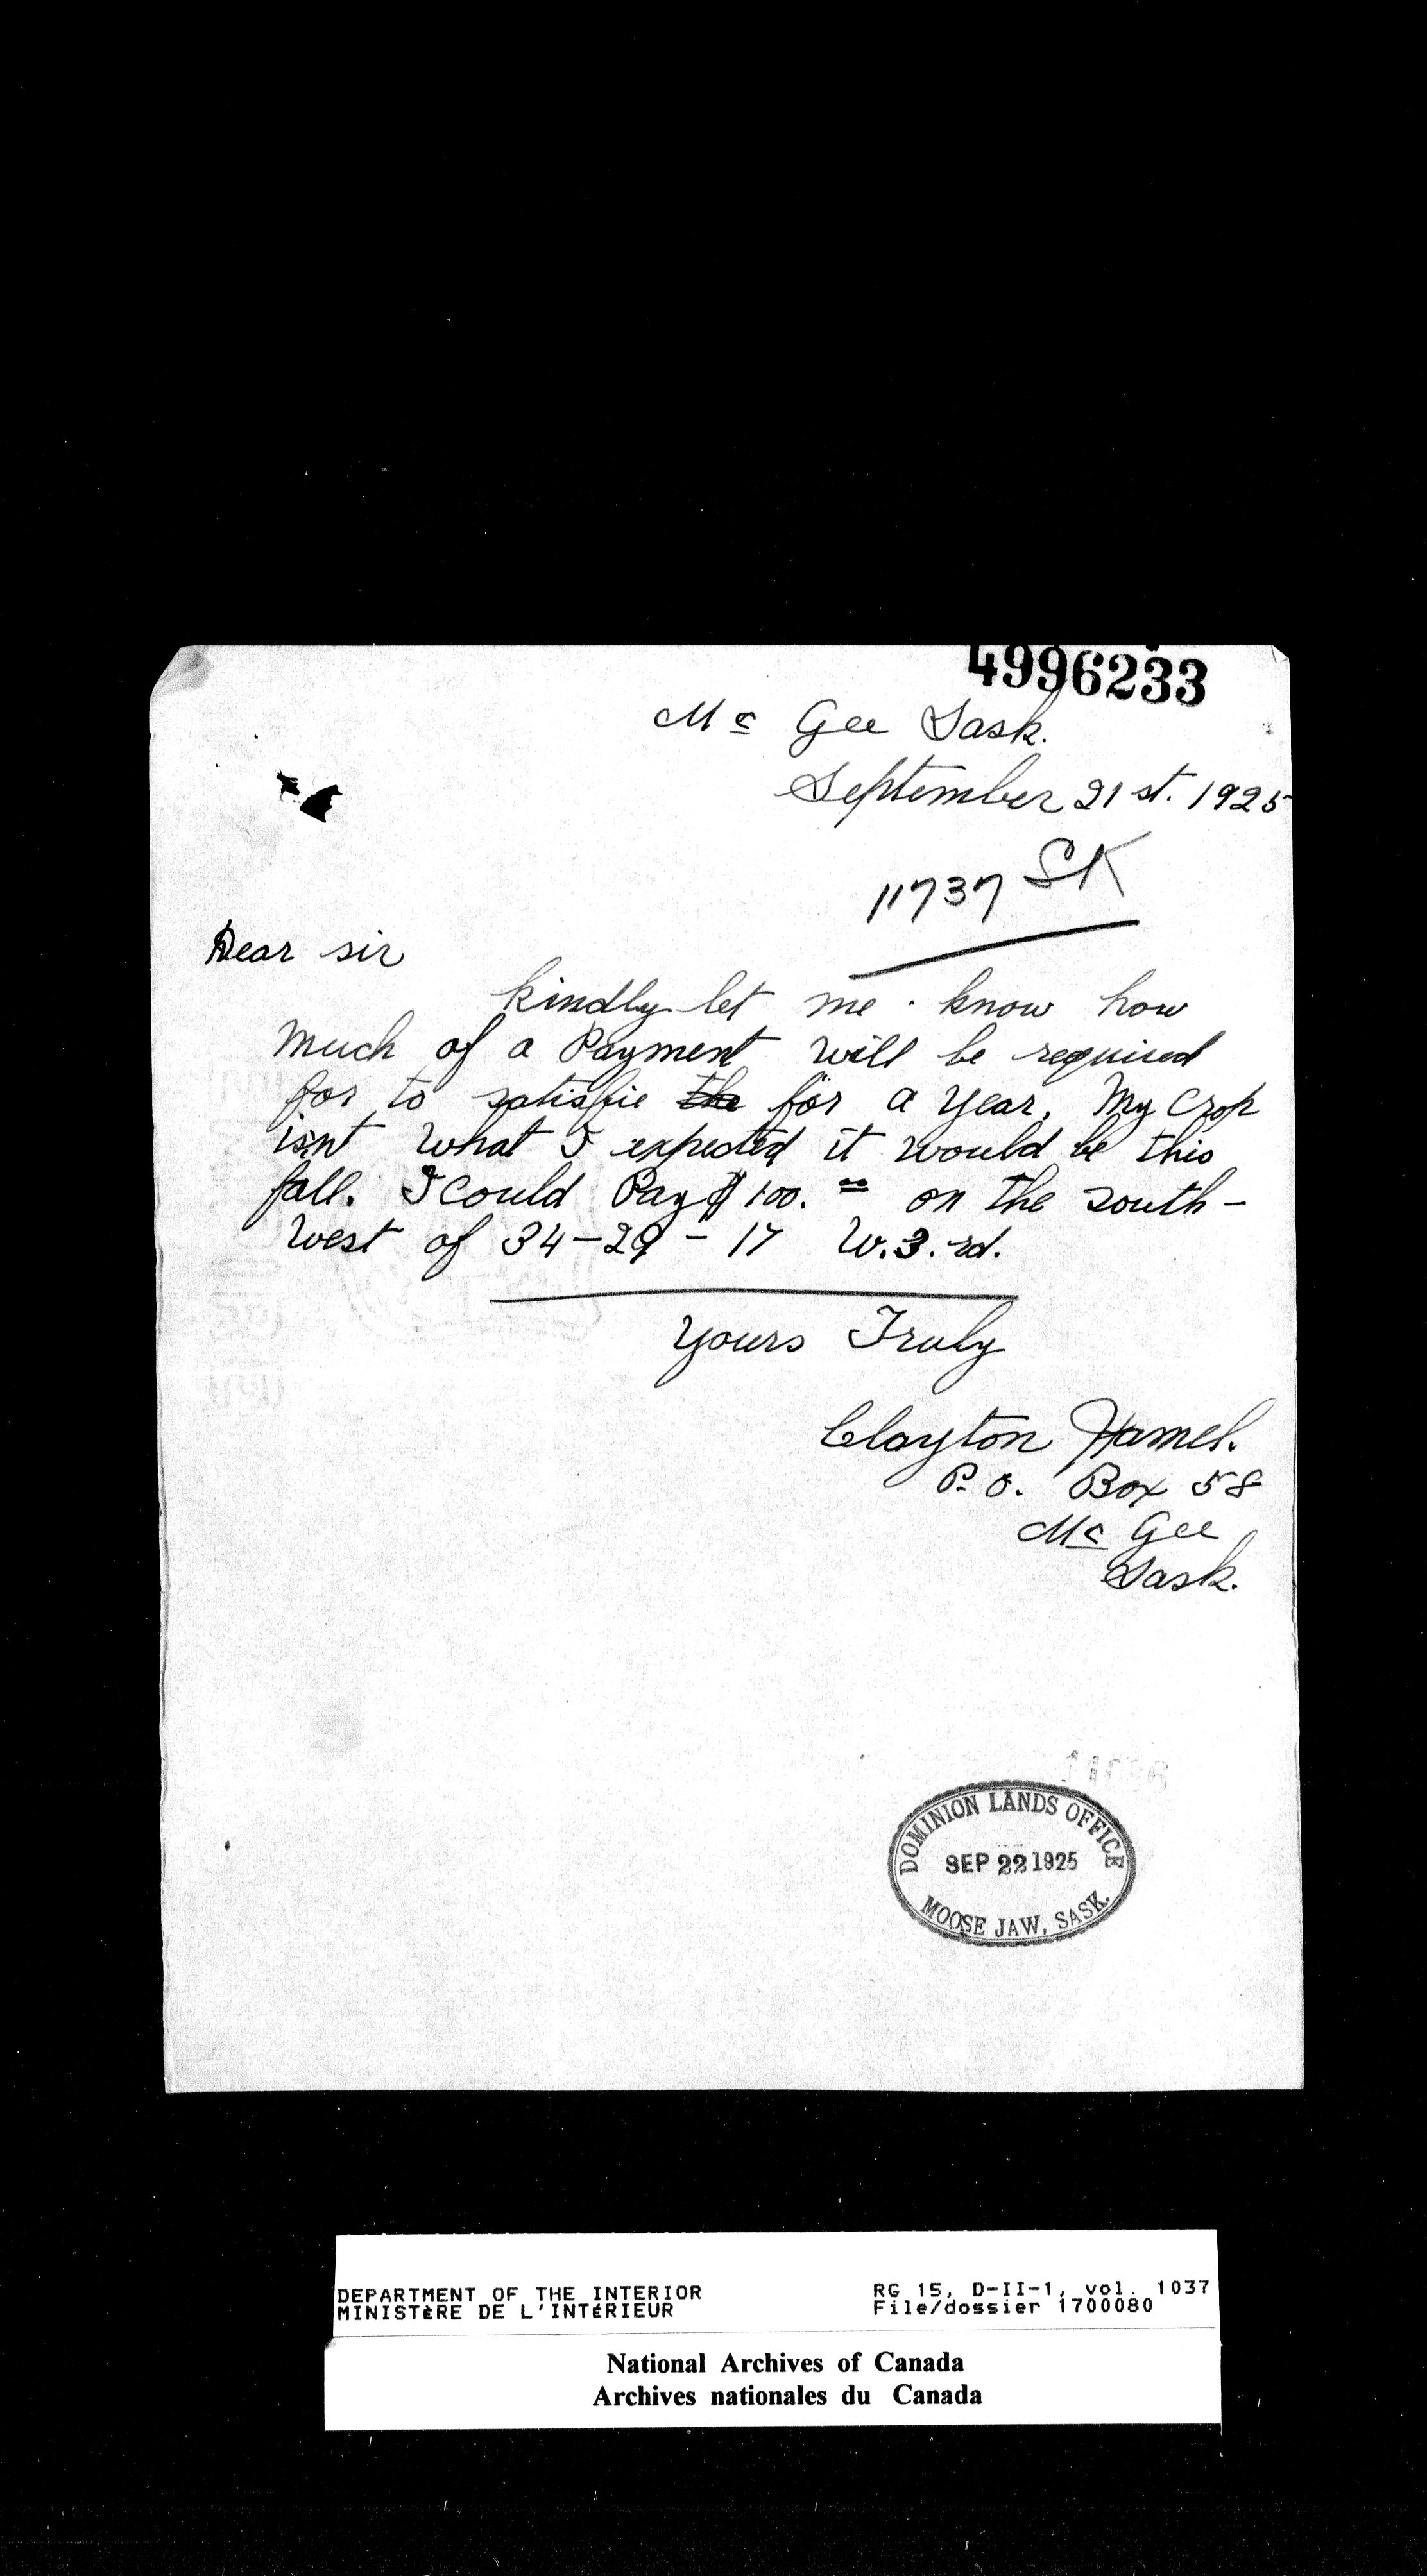 4996233
Mc Gee Sask.
September 21 st. 1925
11737 SK
Dear sir
kindly let me know how
much of a Payment will be required
for to satisfie the for a year. My Crop
isnt what I expected it would be this
fall. I could Pay $100.00 on the south-
west of 34-29-17 W.3.rd.
Yours Truly
Clayton Hamel.
P.O. Box 58
Mc Gee
Sask.
DOMINION LANDS OFFICE
SEP 22 1925
MOOSE JAW, SASK.
DEPARTMENT OF THE INTERIOR RG 15, D-II-1, vol. 1037
MINISTÈRE DE L'INTÉRIEUR File/dossier 1700080
National Archives of Canada
Archives nationales du Canada